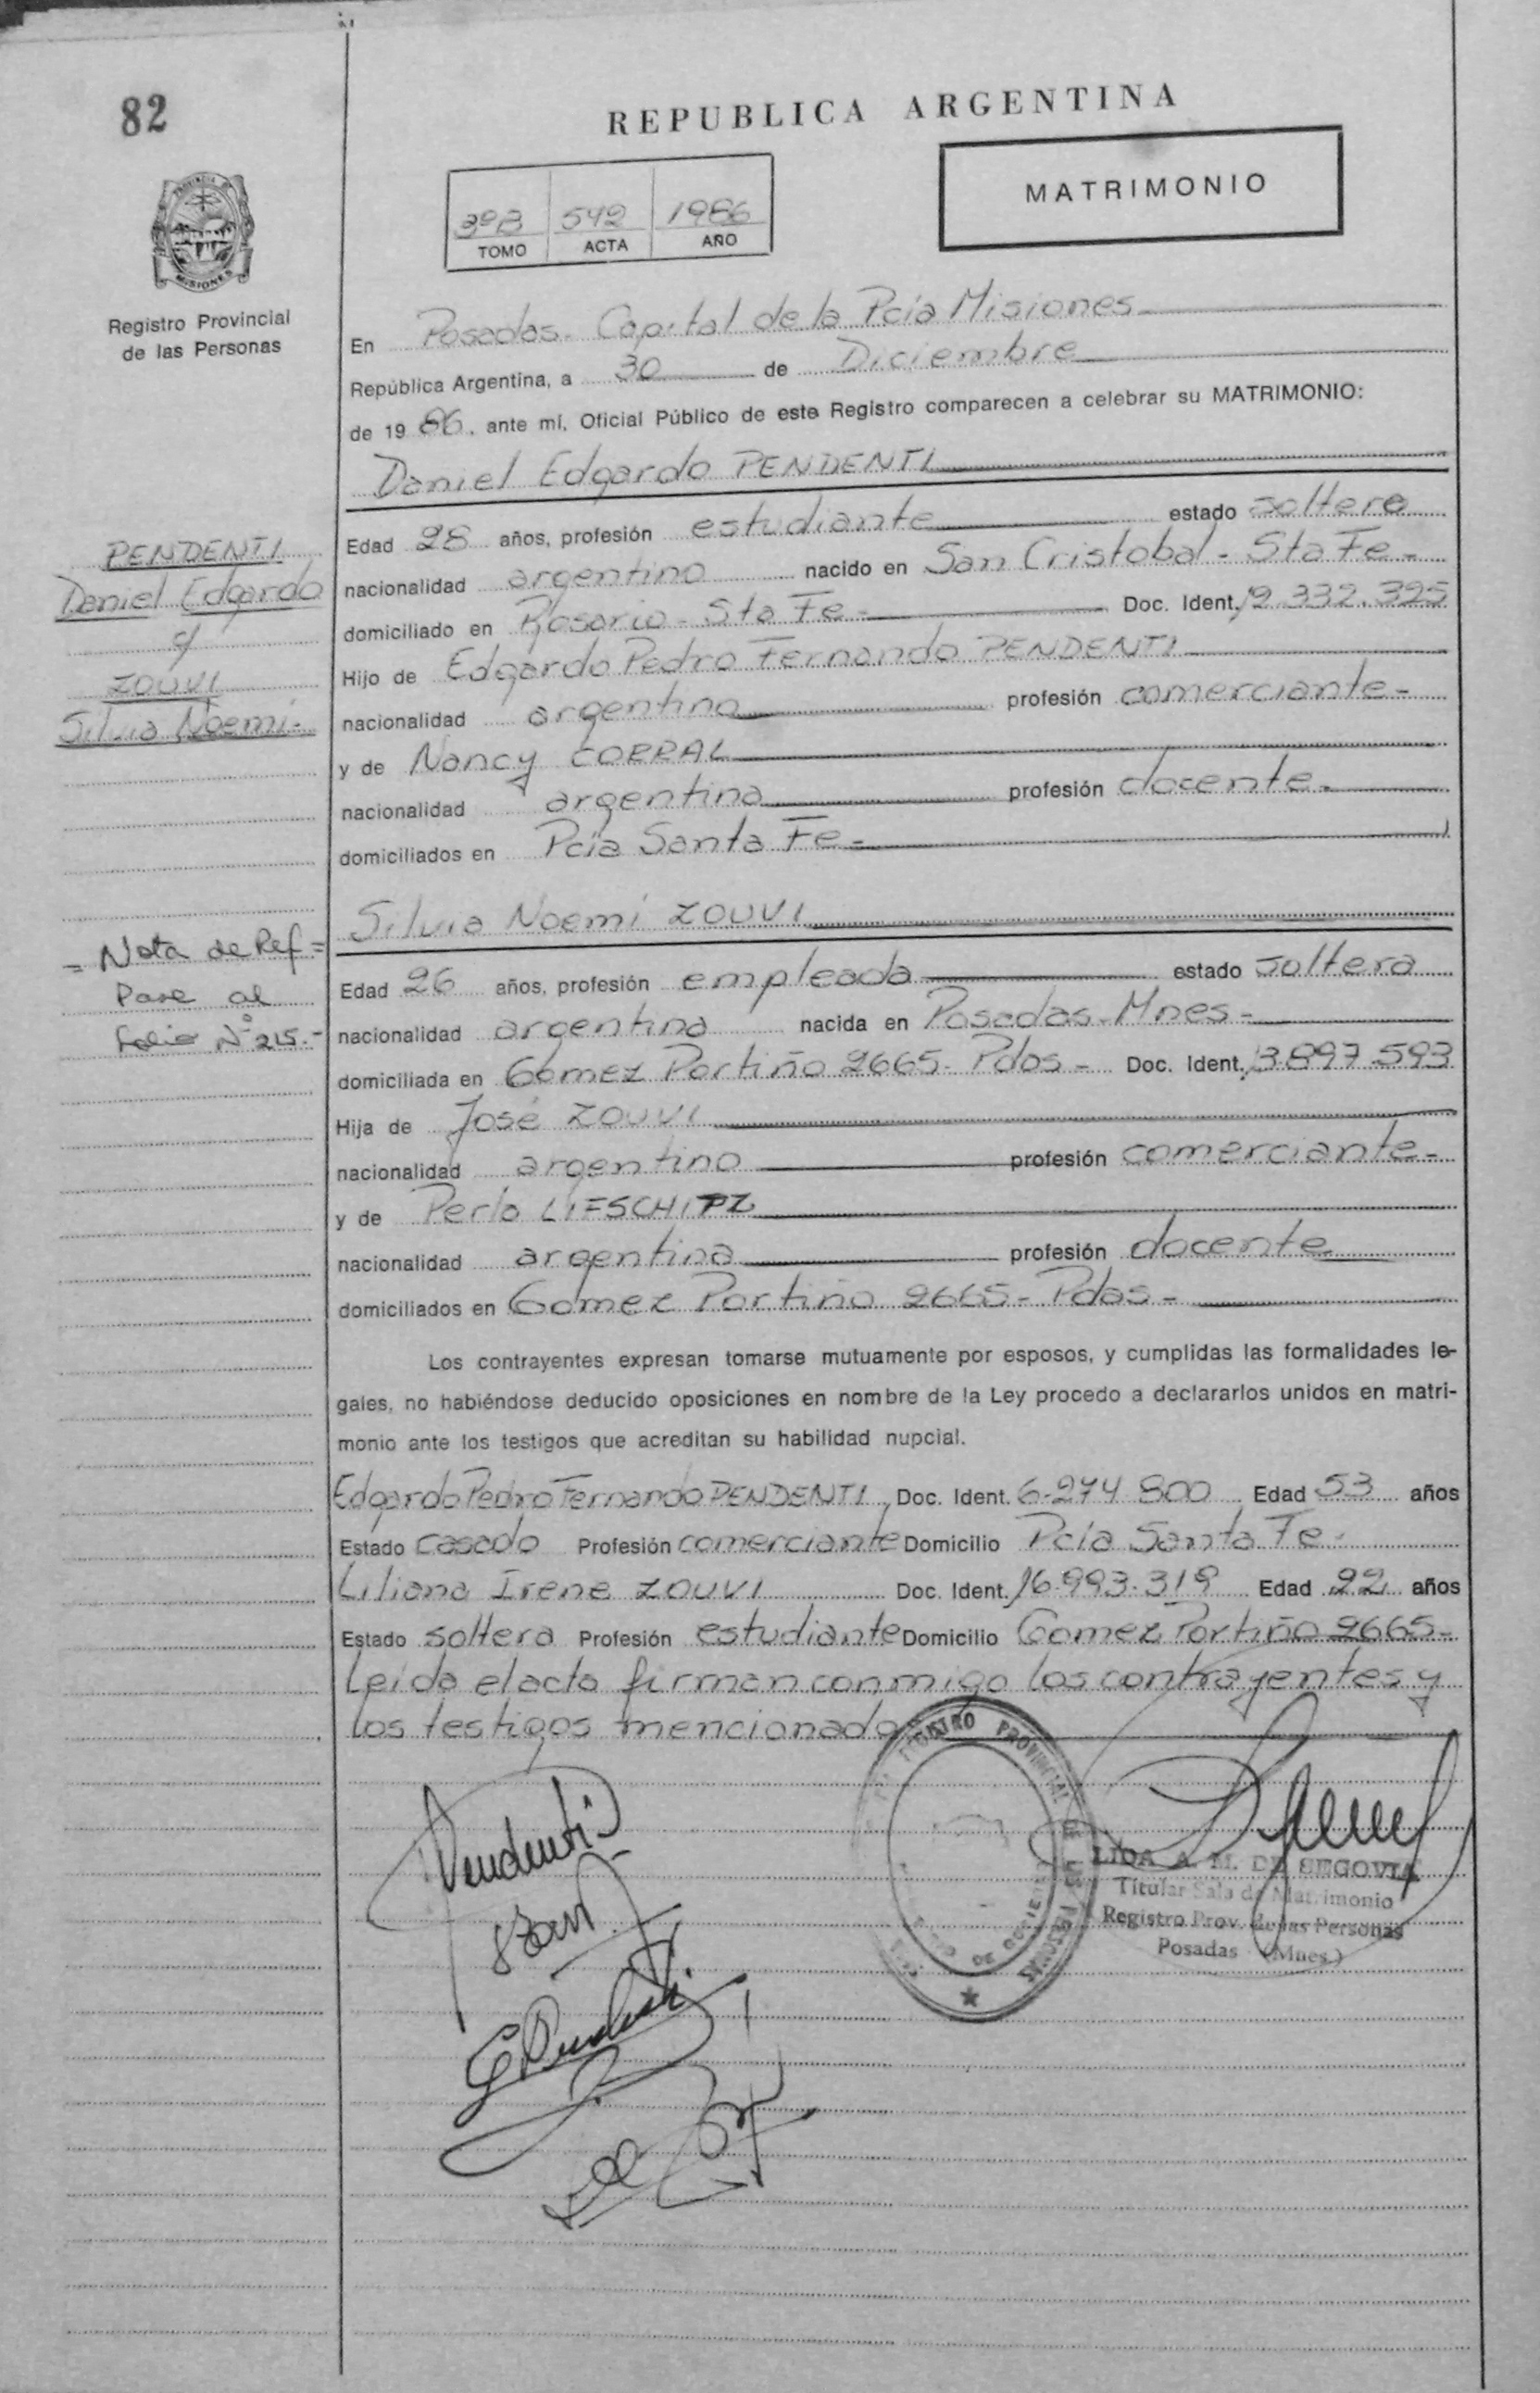 82
REPUBLICA ARGENTINA
MATRIMONIO
3ºB 542 1986
TOMO ACTA AÑO
PROVINCIA DE
MISIONES
Registro Provincial
de las Personas
En Posadas- Capital de la Pcia Misiones
República Argentina, a 30 de Diciembre
de 19 86, ante mí, Oficial Público de este Registro comparecen a celebrar su MATRIMONIO:
Daniel Edgardo PENDENTI
Edad 28 años, profesión estudiante estado soltero
nacionalidad argentino nacido en San Cristobal - Sta Fe -
domiciliado en Rosario - Sta Fe - Doc. Ident. 12.332.325
Hijo de Edgardo Pedro Fernando PENDENTI
nacionalidad argentino profesión comerciante -
y de Nancy CORRAL
nacionalidad argentina profesión docente -
domiciliados en Pcia Santa Fe -
PENDENTI
Daniel Edgardo
c/
ZOUVI
Silvia Noemi -
Silvia Noemi ZOUVI
Edad 26 años, profesión empleada estado soltera
nacionalidad argentina nacida en Posadas - Mnes -
domiciliada en Gómez Portiño 2665 - Pdas - Doc. Ident. 13.897.593
Hija de José ZOUVI
nacionalidad argentino profesión comerciante -
y de Perla LIFSCHITZ
nacionalidad argentina profesión docente
domiciliados en Gomez Portiño 2665 - Pdas -
= Nota de Ref =
Pase al
folio Nº 215.-
Los contrayentes expresan tomarse mutuamente por esposos, y cumplidas las formalidades le-
gales, no habiéndose deducido oposiciones en nombre de la Ley procedo a declararlos unidos en matri-
monio ante los testigos que acreditan su habilidad nupcial.
Edgardo Pedro Fernando PENDENTI Doc. Ident. 6.274.800 Edad 53 años
Estado casado Profesión comerciante Domicilio Pcia Santa Fe -
Liliana Irene ZOUVI Doc. Ident. 16.993.319 Edad 22 años
Estado soltera Profesión estudiante Domicilio Gomez Portiño 2665 -
Leida el acta firman conmigo los contrayentes y
los testigos mencionado
REGISTRO PROVINCIAL DE LAS PERSONAS
Pendenti
LIDA A. M. DE SEGOVIA
Titular Sala de Matrimonio
Registro Prov. de las Personas
Posadas (Mnes.)